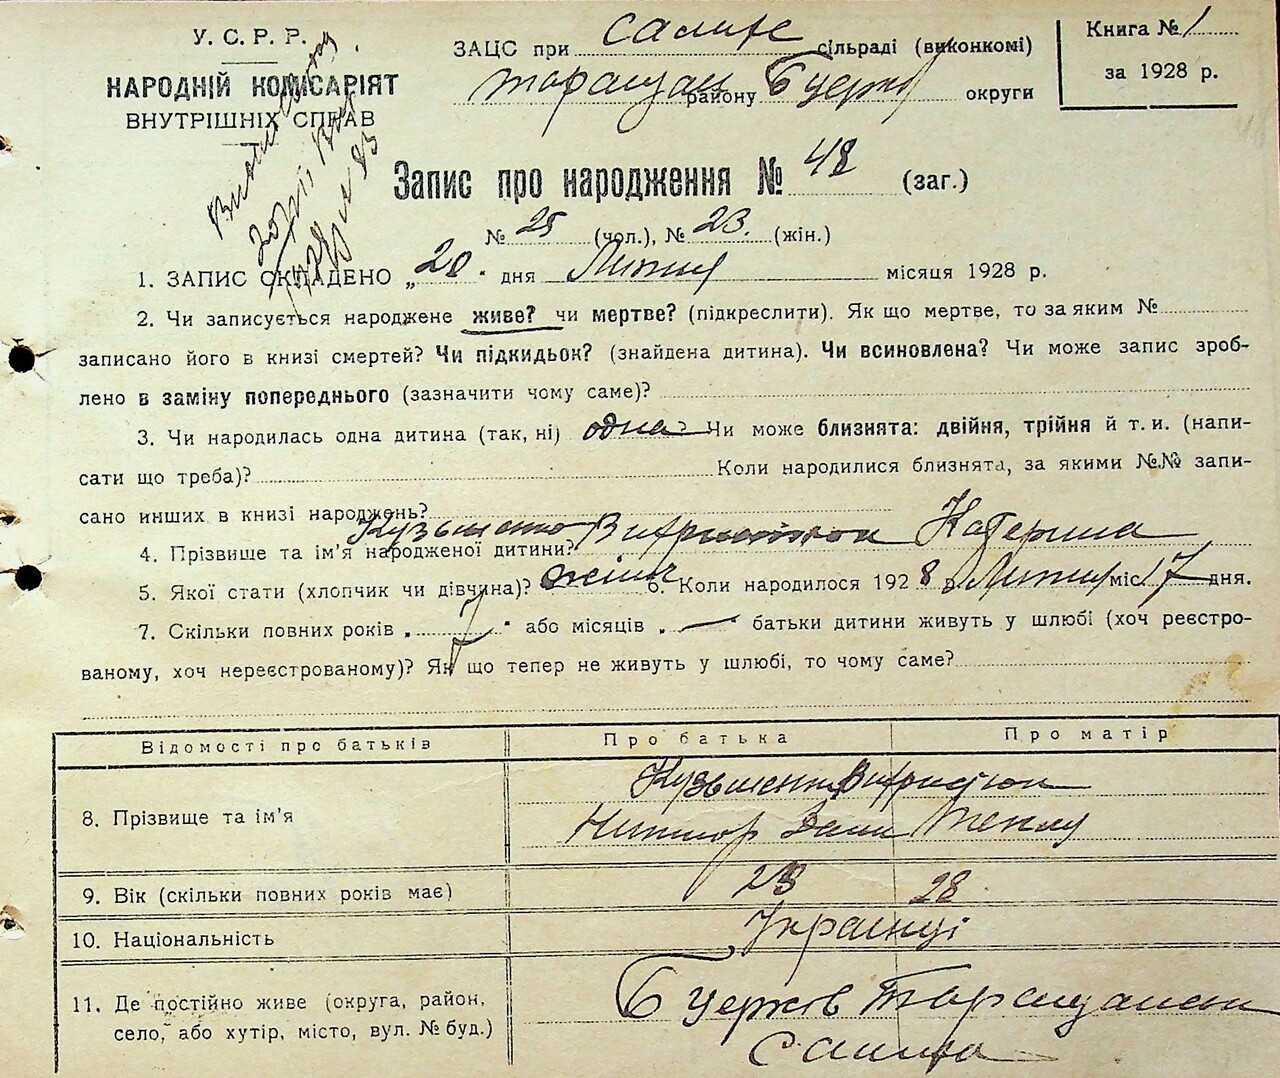 У. С. Р. Р.
НАРОДНІЙ КОМІСАРІЯТ
ВНУТРІШНІХ СПРАВ
ЗАЦС при сільраді (виконкомі)
району Б церкв округи
Книга № 1
за 1928 р.
Запис про народження № 48 (заг.)
№ 25 (чол.), № 23. (жін.)
1. ЗАПИС СКЛАДЕНО „20" дня Липня місяця 1928 р.
2. Чи записується народжене живе? чи мертве? (підкреслити). Як що мертве, то за яким №
записано його в книзі смертей? Чи підкидьок? (знайдена дитина). Чи всиновлена? Чи може запис зроб-
лено в заміну попереднього (зазначити чому саме)?
3. Чи народилась одна дитина (так, ні) одна Чи може близнята: двійня, трійня й т. и. (напи-
сати що треба)? Коли народилися близнята, за якими №№ запи-
сано инших в книзі народжень?
4. Прізвище та ім'я народженої дитини? Кузьменко Катерина
5. Якої стати (хлопчик чи дівчина)? жіноч 6. Коли народилося 1928 в Липня міс 17 дня.
7. Скільки повних років „ 7 " або місяців „ — " батьки дитини живуть у шлюбі (хоч реєстро-
ваному, хоч нереєстрованому)? Як що тепер не живуть у шлюбі, то чому саме?
Відомості про батьків Про батька Про матір
8. Прізвище та ім'я
9. Вік (скільки повних років має) 28 28
10. Національність Українці
11. Де постійно живе (округа, район,
село, або хутір, місто, вул. № буд.)
Б церков